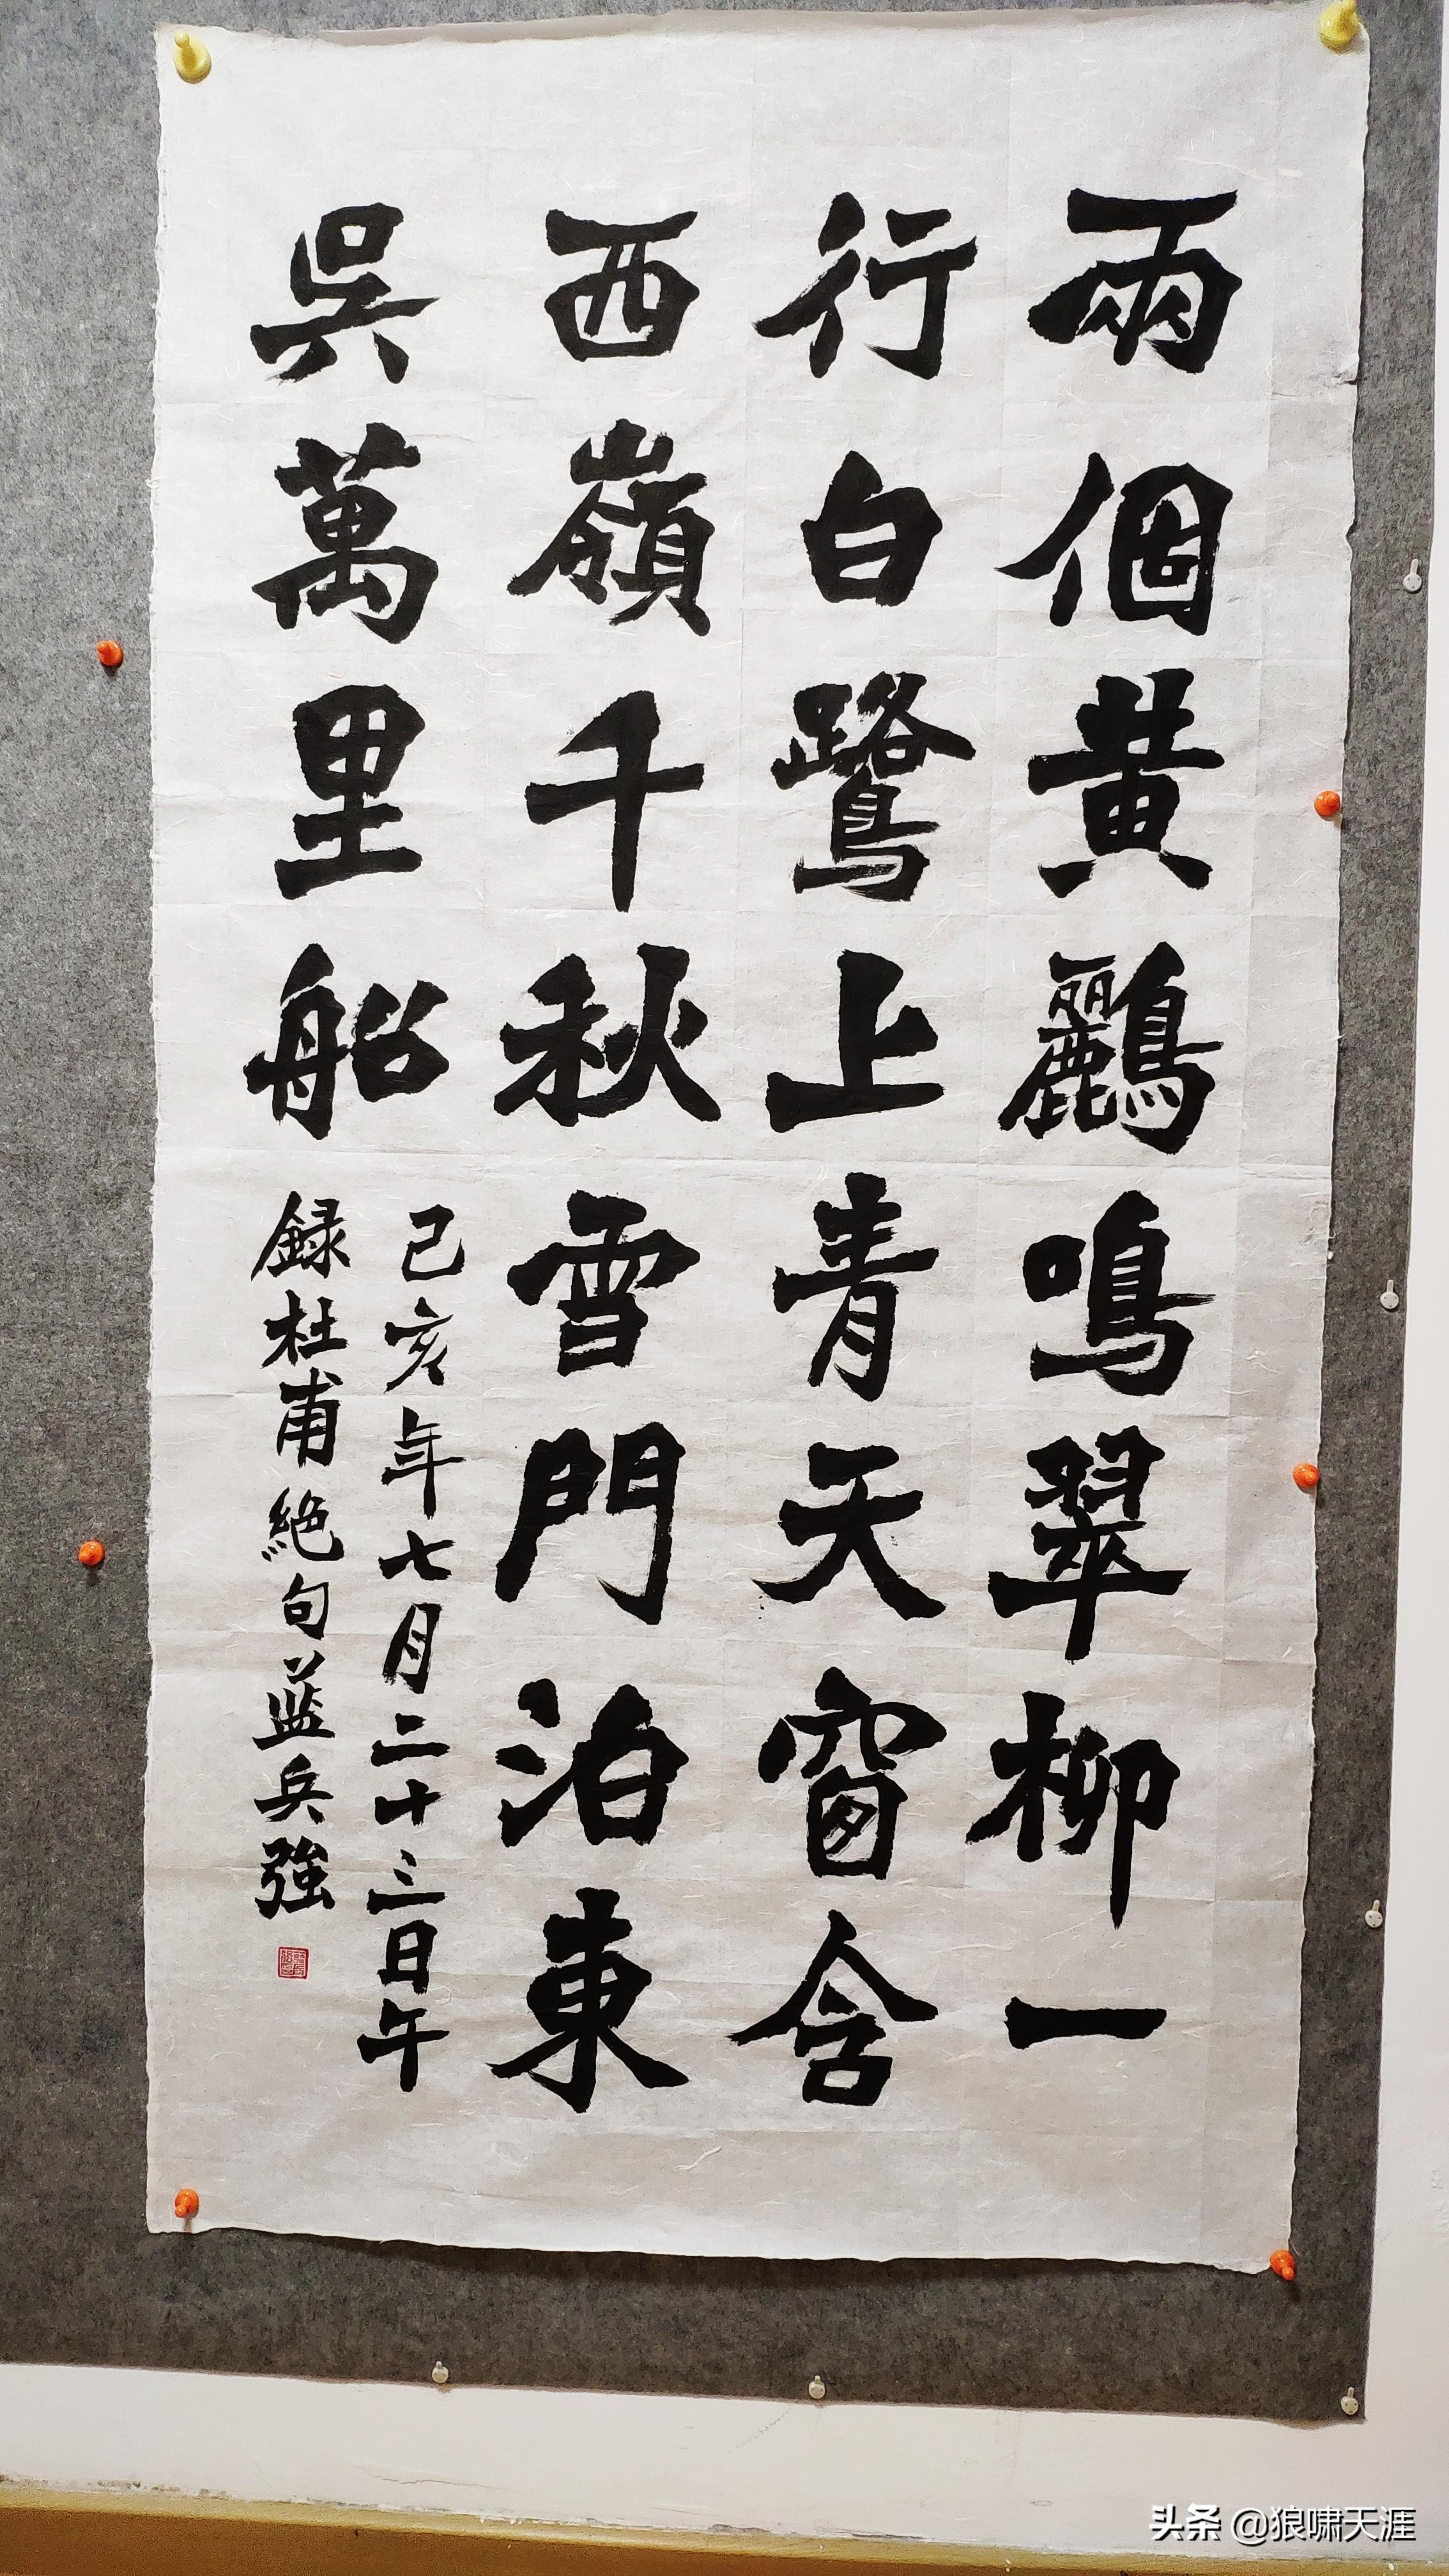 兩個黃鸝鳴翠柳一
行白鷺上青天窗含
西嶺千秋雪門泊東
吳萬里船
己亥年七月二十三日午
録杜甫絶句蓝兵強
头条 @狼啸天涯